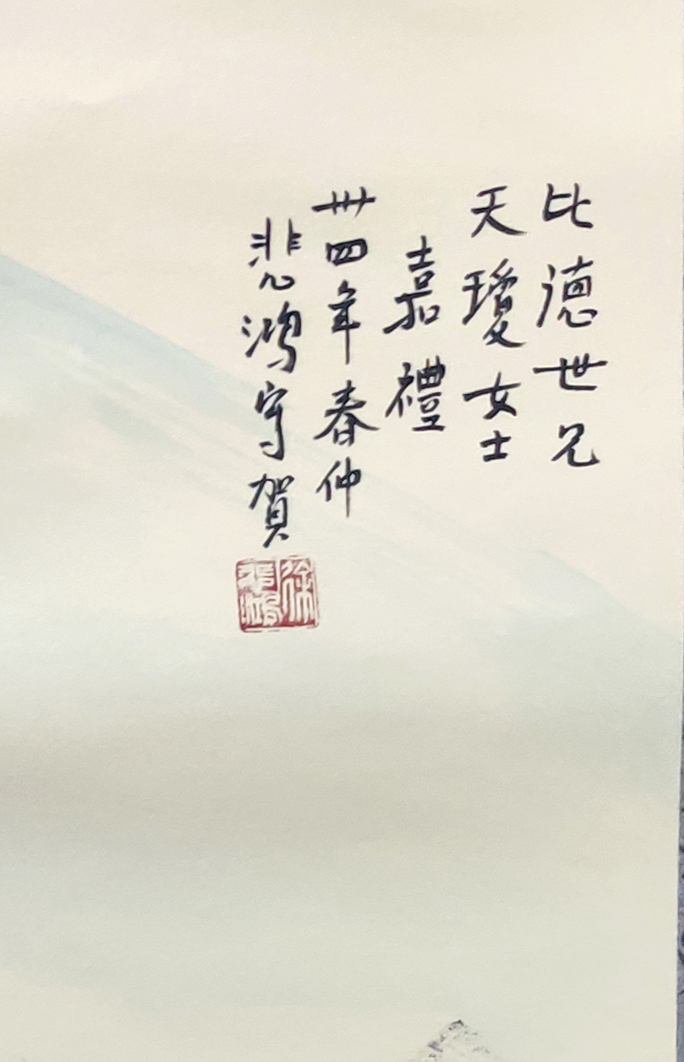 比德世兄
天瓊女士
嘉禮
卅四年春仲
悲鴻寫賀
徐悲鴻